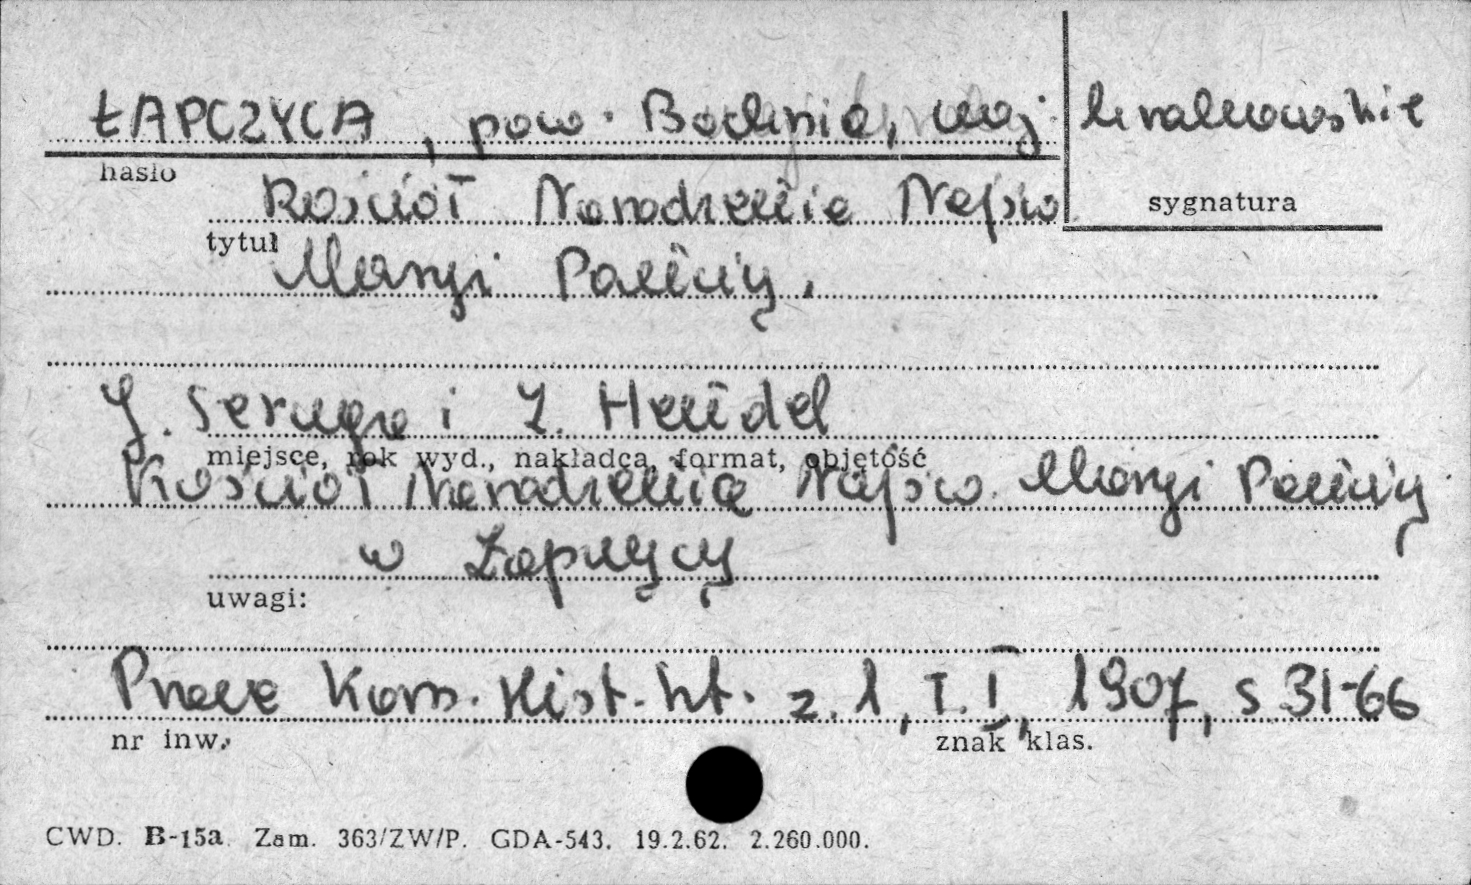 ŁAPCZYCA, pow. Bochnia, woj. krakowskie
hasło
sygnatura
Kościół Narodzenia Najśw
tytuł
Maryi Panny.
J. Seruga i Z. Hendel
miejsce, rok wyd., nakładca, format, objętość
Kościół Narodzenia Najśw. Maryi Panny
w Łapczycy
uwagi:
Prace Kom. Hist. szt. z. 1, T. I, 1907, s 31-66
nr inw.
znak klas.
CWD. B-15a Zam. 363/ZW/P. GDA-543. 19.2.62. 2.260.000.